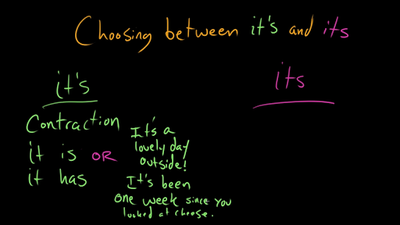 Choosing between it's and its
it's
Contraction
it is OR
it has
It's a
lovely day
outside!
It's been
one week since you
looked at choose.
its